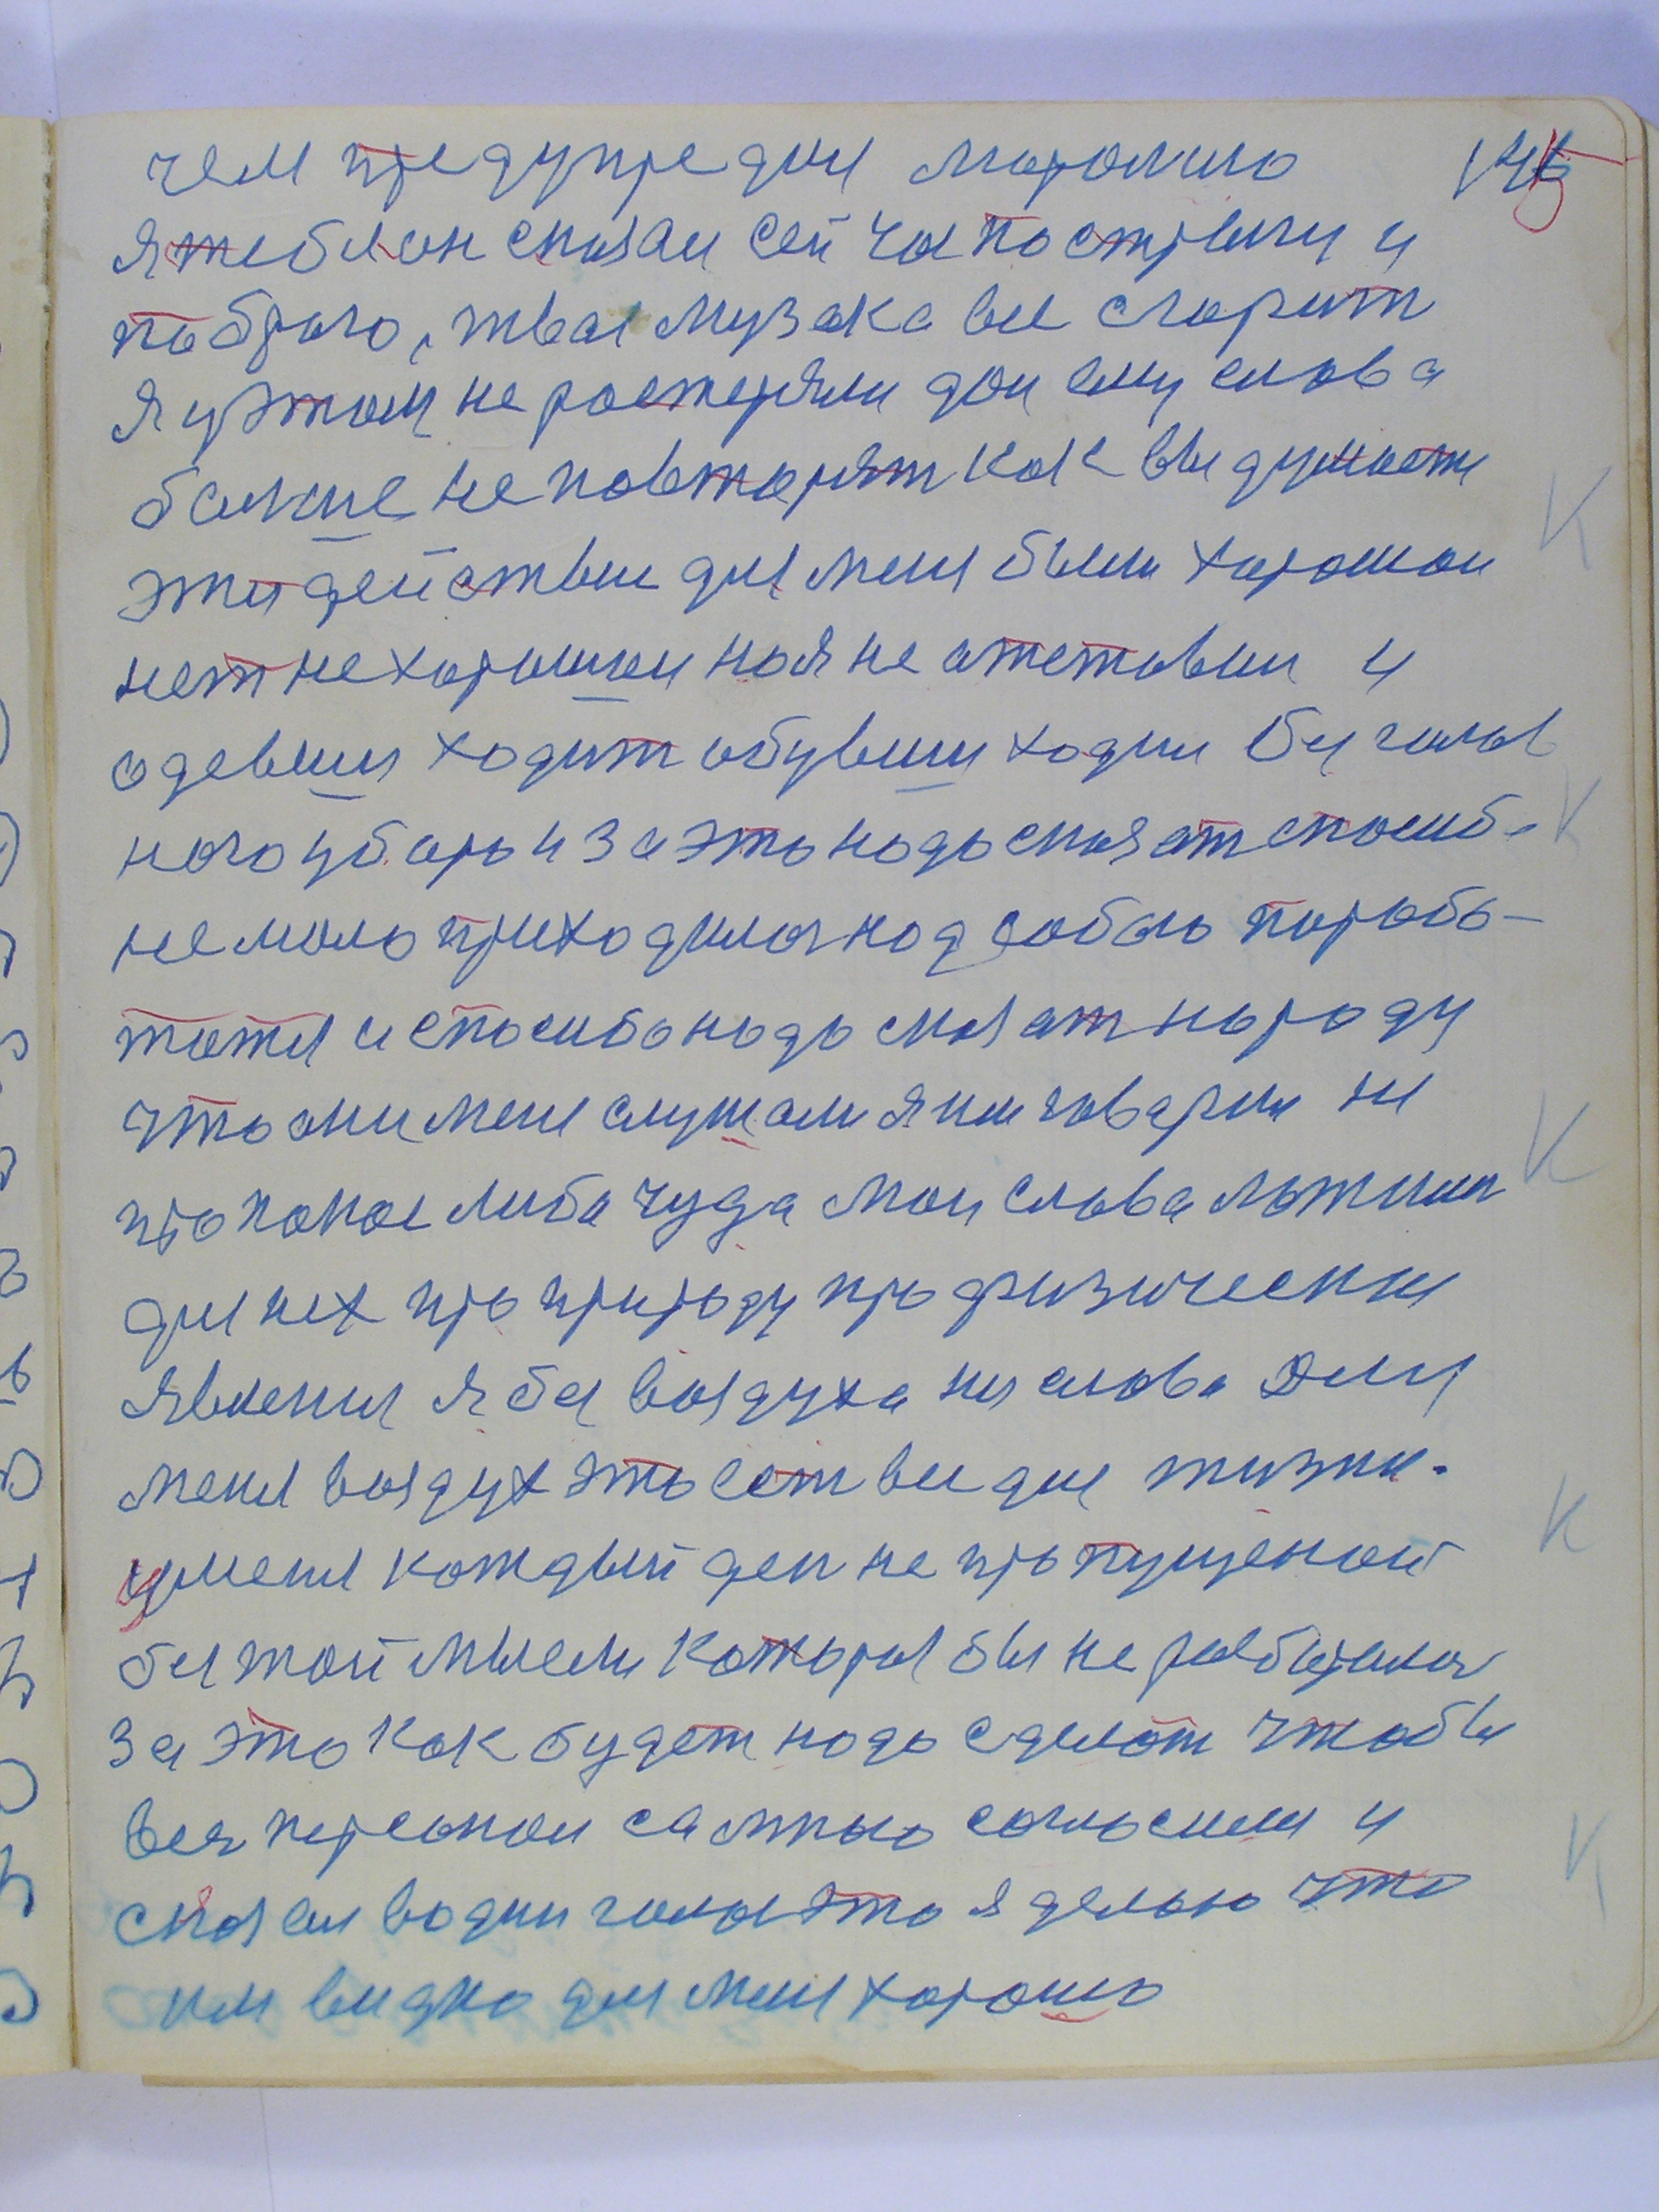 чем предупредил 145
я тебя он сказал сей час постригу и
побрею, твая музака вся сгорит
я у этом не ростерялси дал ему слова
больше не повторят как вы думаети
эти действии для меня были харошаи
нет не харошаи но я не отстовал и
одевши ходит обувши ходил без голов
ного убора и за это надо сказат спосиб-
не мало приходилос над собою порабо-
тотя и спосибо надо сказат народу
что они меня слушали я им говарил не
про какое либа чуда мои слова
для них про природу про физически
явления я без воздуха ни слова Для
меня воздух это ест все для жизни.
у меня каждый ден не пропущеной
без той мысли которая бы не розбиралос
За это как будет надо сделат чтобы
вся персонал са мною согласилис и
сказал водин голос это я делаю что
им видно для меня харошо